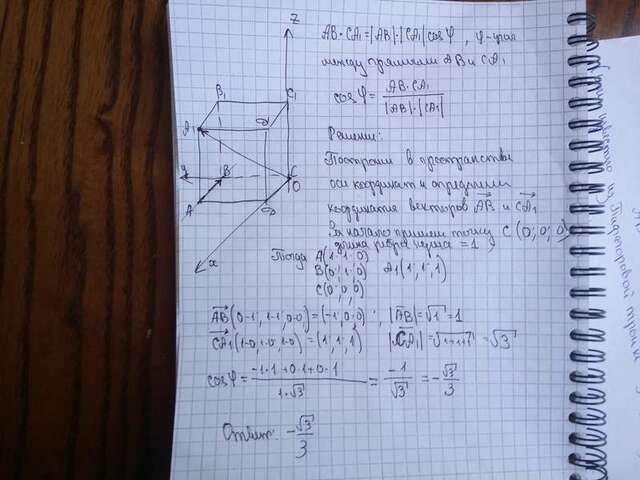 AB·CA₁=|AB|·|CA₁| cosφ, φ-угол
между прямыми AB и CA₁
cosφ = AB·CA₁ / |AB|·|CA₁|
Решение:
Построим в пространстве
оси координат и определим
координаты векторов AB и CA₁
За начало примем точку C (0; 0; 0)
длина ребра =1
Тогда A(1; 1; 0)
B(0; 1; 0) A₁(1; 1; 1)
C(0; 0; 0)
AB(0-1; 1-1; 0-0)=(-1; 0; 0); |AB|=√1=1
CA₁(1-0; 1-0; 1-0)=(1; 1; 1) |CA₁|=√1+1+1=√3
cosφ= -1·1+0·1+0·1 / 1·√3 = -1/√3 = -√3/3
Ответ: -√3/3
z
B₁
C₁
A₁
D₁
y
B
C
O
A
D
x